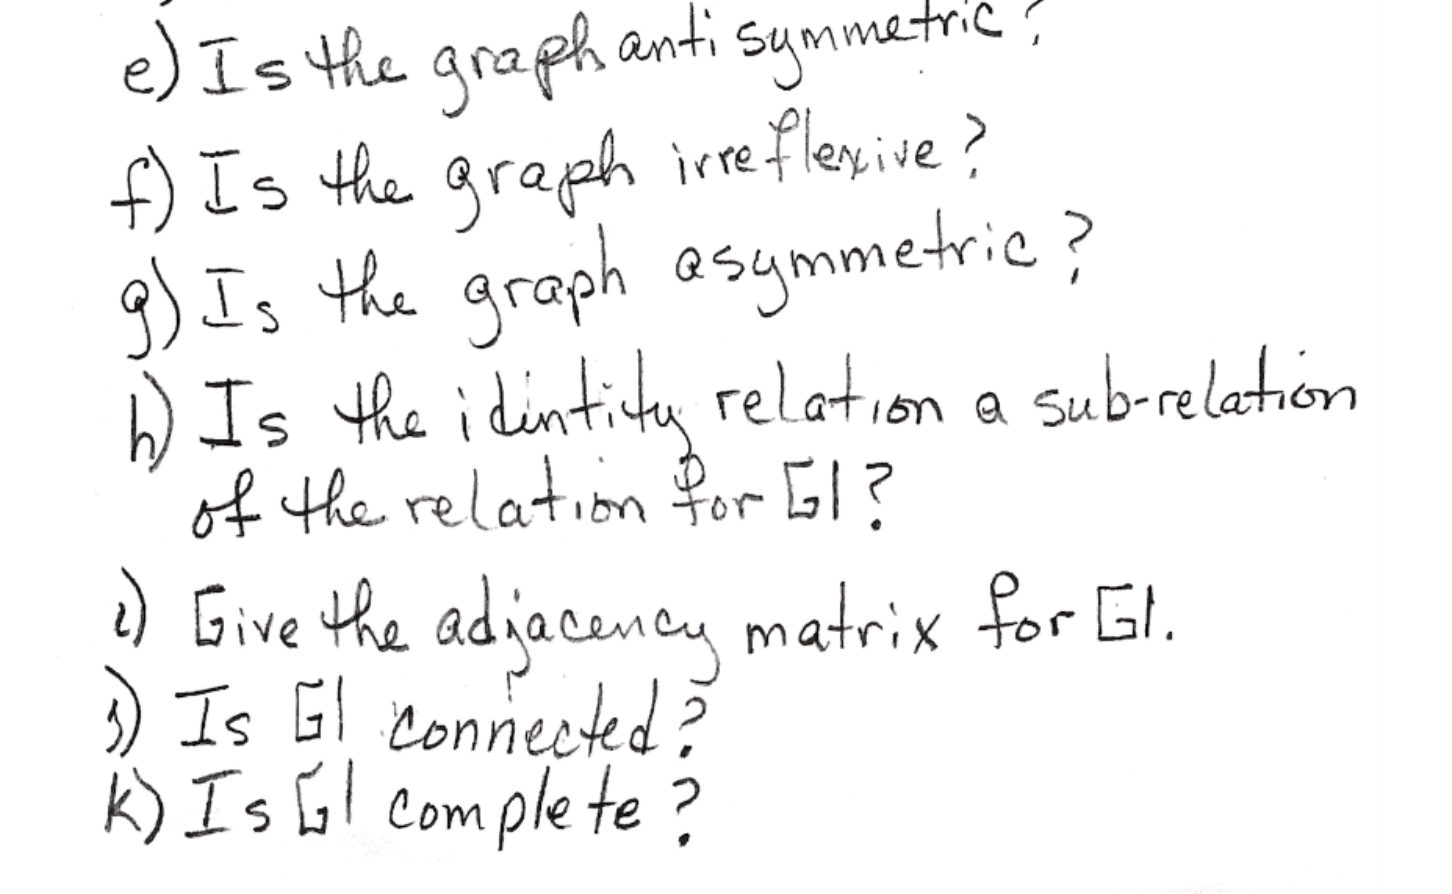 e) Is the graph anti symmetric?
f) Is the graph irreflexive?
g) Is the graph asymmetric?
h) Is the identity relation a sub-relation
of the relation for G1?
i) Give the adjacency matrix for G1.
j) Is G1 connected?
k) Is G1 complete?